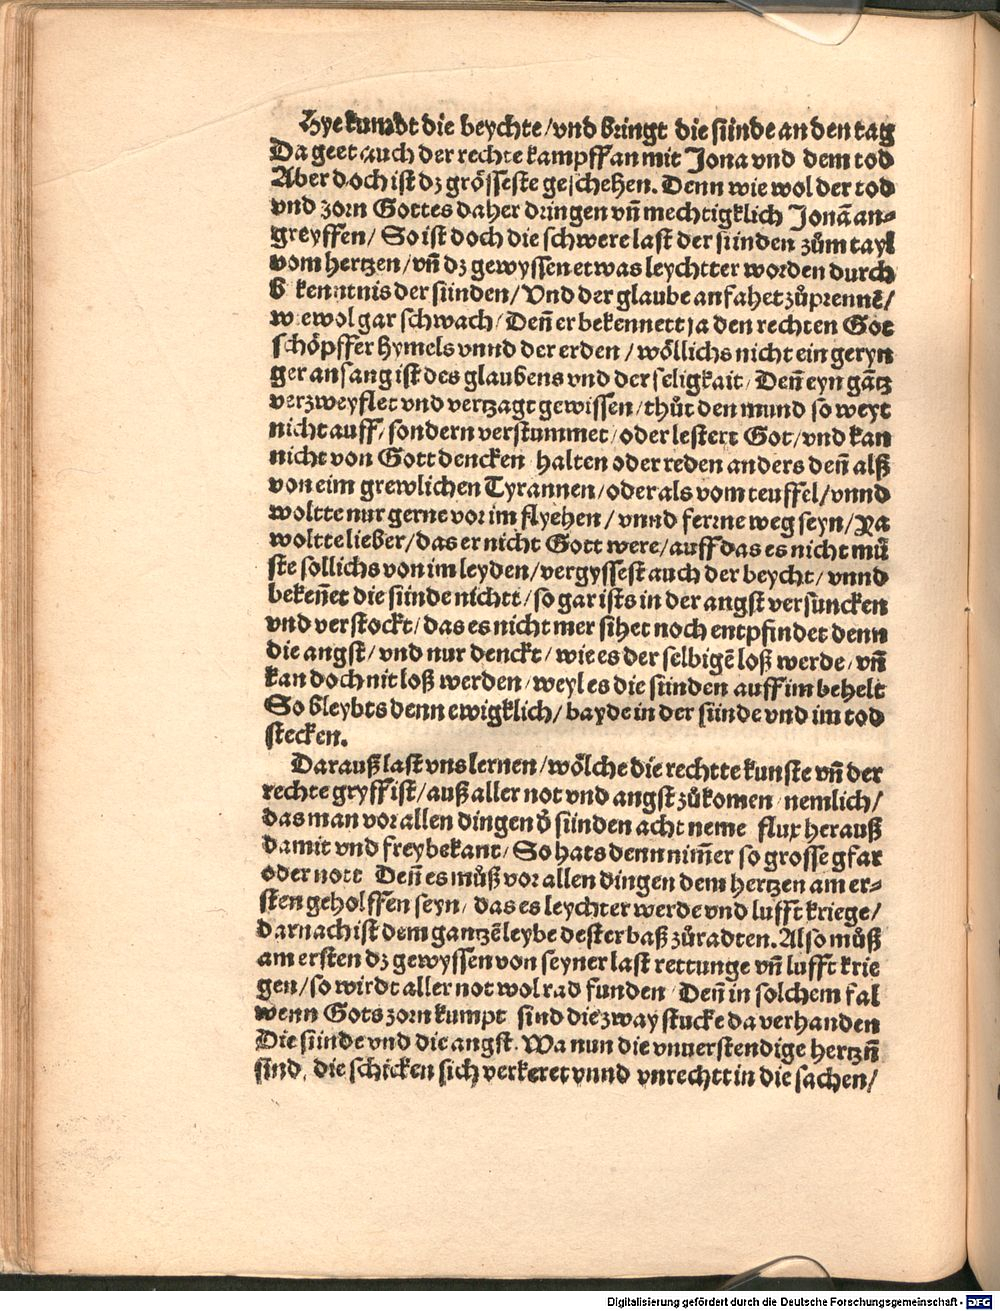 Hye kumbt die beychte/vnd bringt die sünde an den tag
Da geet auch der rechte kampff an mit Jona vnd dem tod
Aber doch ist dz grösseste geschehen. Denn wie wol der tod
vnd zorn Gottes daher dringen vñ mechtigklich Jonã an-
greyffen/ So ist doch die schwere last der sünden zům tayl
vom hertzen/vñ dz gewyssen etwas leychtter worden durch
kenntnis der sünden/Vnd der glaube anfahet zůprennẽ/
wiewol gar schwach/Deñ er bekennett ja den rechten Got
schöpffer hymels vnnd der erden /wöllichs nicht ein geryn
ger anfang ist des glaubens vnd der seligkait/Deñ eyn gãtz
verzweyflet vnd vertzagt gewissen/thůt den mund so weyt
nicht auff/sondern verstummet/oder lestert Got/vnd kan
nicht von Gott dencken halten oder reden anders deñ alß
von eim grewlichen Tyrannen/oder als vom teuffel/vnnd
woltte nur gerne vor im flyehen/vnnd ferrne weg seyn/Ya
woltte lieber/das er nicht Gott were/auff das es nicht mů
ste sollichs von im leyden/vergyssest auch der beycht/vnnd
bekeñet die sünde nichtt/so gar ists in der angst versuncken
vnd verstockt/das es nicht mer sihet noch entpfindet denn
die angst/vnd nur denckt/wie es der selbigẽ loß werde/vñ
kan doch nit loß werden/weyl es die sünden auff im behelt
So bleybts denn ewigklich/bayde in der sünde vnd im tod
stecken.
Darauß last vns lernen/wölche die rechtte kunste vñ der
rechte gryff ist/auß aller not vnd angst zůkomen nemlich/
das man vor allen dingen d̃ sünden acht neme flux herauß
damit vnd frey bekant/So hats denn nim̃er so grosse gfar
oder nott Deñ es můß vor allen dingen dem hertzen am er-
sten geholffen seyn/das es leychter werde vnd lufft kriege/
darnach ist dem gantzẽ leybe dester baß zůradten. Also můß
am ersten dz gewyssen von seyner last rettunge vñ lufft krie
gen/so wirdt aller not wol rad funden/Deñ in solchem fal
wenn Gots zorn kumpt sind die zway stucke da verhanden
Die sünde vnd die angst. Wa nun die vnuerstendige hertzñ
sind, die schicken sich verkeret vnnd vnrechtt in die sachen/
Digitalisierung gefördert durch die Deutsche Forschungsgemeinschaft - DFG